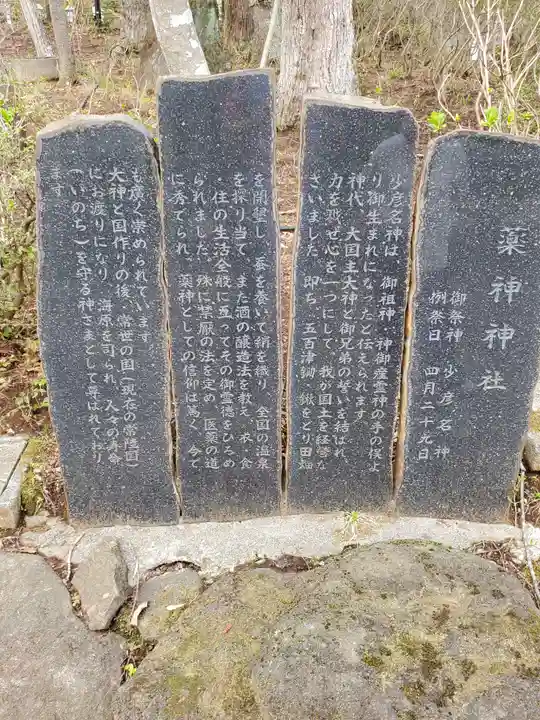 薬神神社
御祭神 少彦名神
例祭日 四月二十九日
少彦名神は、御祖神、神御産霊神の手の俣よ
り御生まれになったと伝えられます
神代、大国主大神と御兄弟の誓いを結ばれ
力を戮せ心を一つにして、我が国土を経営な
さいました。即ち、五百津鋤、鍬をとり田畑
を開墾し、蚕を養いて絹を織り、全国の温泉
を探り当て、また酒の醸造法を教え、衣・食
・住の生活全般に亙ってその御霊徳をひろめ
られました。殊に禁厭の法を定め、医薬の道
に秀でられ、薬神としての信仰は篤く、今で
も廣く崇められています。
大神と国作りの後、常世の国(現在の常陸国)
にお渡りになり、海原を司られ、人々の寿命
(いのち)を守る神さまとして尊ばれており
ます